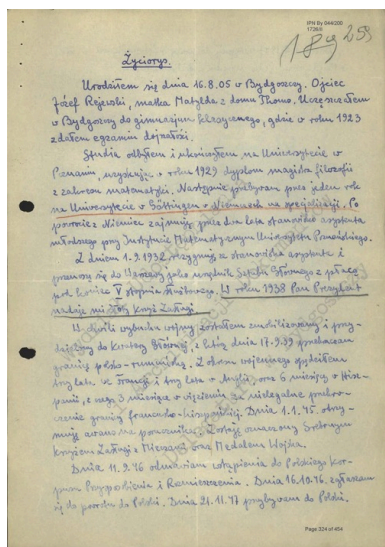 IPN By 044/206
1728/II
189 259
Życiorys.
Urodziłem się dnia 16.8.05 w Bydgoszczy. Ojciec
Józef Rejewski, matka Matylda z domu Thoms. Uczęszczałem
w Bydgoszczy do gimnazjum klasycznego, gdzie w roku 1923
zdałem egzamin dojrzałości.
Studia odbyłem i ukończyłem na Uniwersytecie w
Poznaniu, uzyskując w roku 1929 dyplom magistra filozofii
z zakresu matematyki. Następnie przebywam przez jeden rok
na Uniwersytecie w Göttingen w Niemczech na specjalizacji. Po
powrocie z Niemiec zajmuję przez dwa lata stanowisko asystenta
młodszego przy Instytucie Matematycznym Uniwersytetu Poznańskiego.
Z dniem 1.9.1932 rezygnuję ze stanowiska asystenta i
przenoszę się do Warszawy jako urzędnik Sztabu Głównego z płacą
pod koniec V stopnia służbowego. W roku 1938 Pan Prezydent
nadaje mi Złoty Krzyż Zasługi.
W chwili wybuchu wojny zostałem zmobilizowany i przy-
dzielony do Kwatery Głównej, z którą dnia 17.9.39 przekraczam
granicę polsko-rumuńską. Z okresu wojennego spędziłem
trzy lata we Francji i trzy lata w Anglii, oraz 6 miesięcy w Hisz-
panii, z czego 3 miesiące w więzieniu za nielegalne przekro-
czenie granicy francusko-hiszpańskiej. Dnia 1.1.45. otrzy-
muję awans na porucznika. Zostaję odznaczony Srebrnym
Krzyżem Zasługi z Mieczami oraz Medalem Wojska.
Dnia 11.9.46 odmawiam wstąpienia do Polskiego Kor-
pusu Przysposobienia i Rozmieszczenia. Dnia 16.10.46 zgłaszam
się do powrotu do Polski. Dnia 21.11.47 przybywam do Polski.
Page 324 of 454